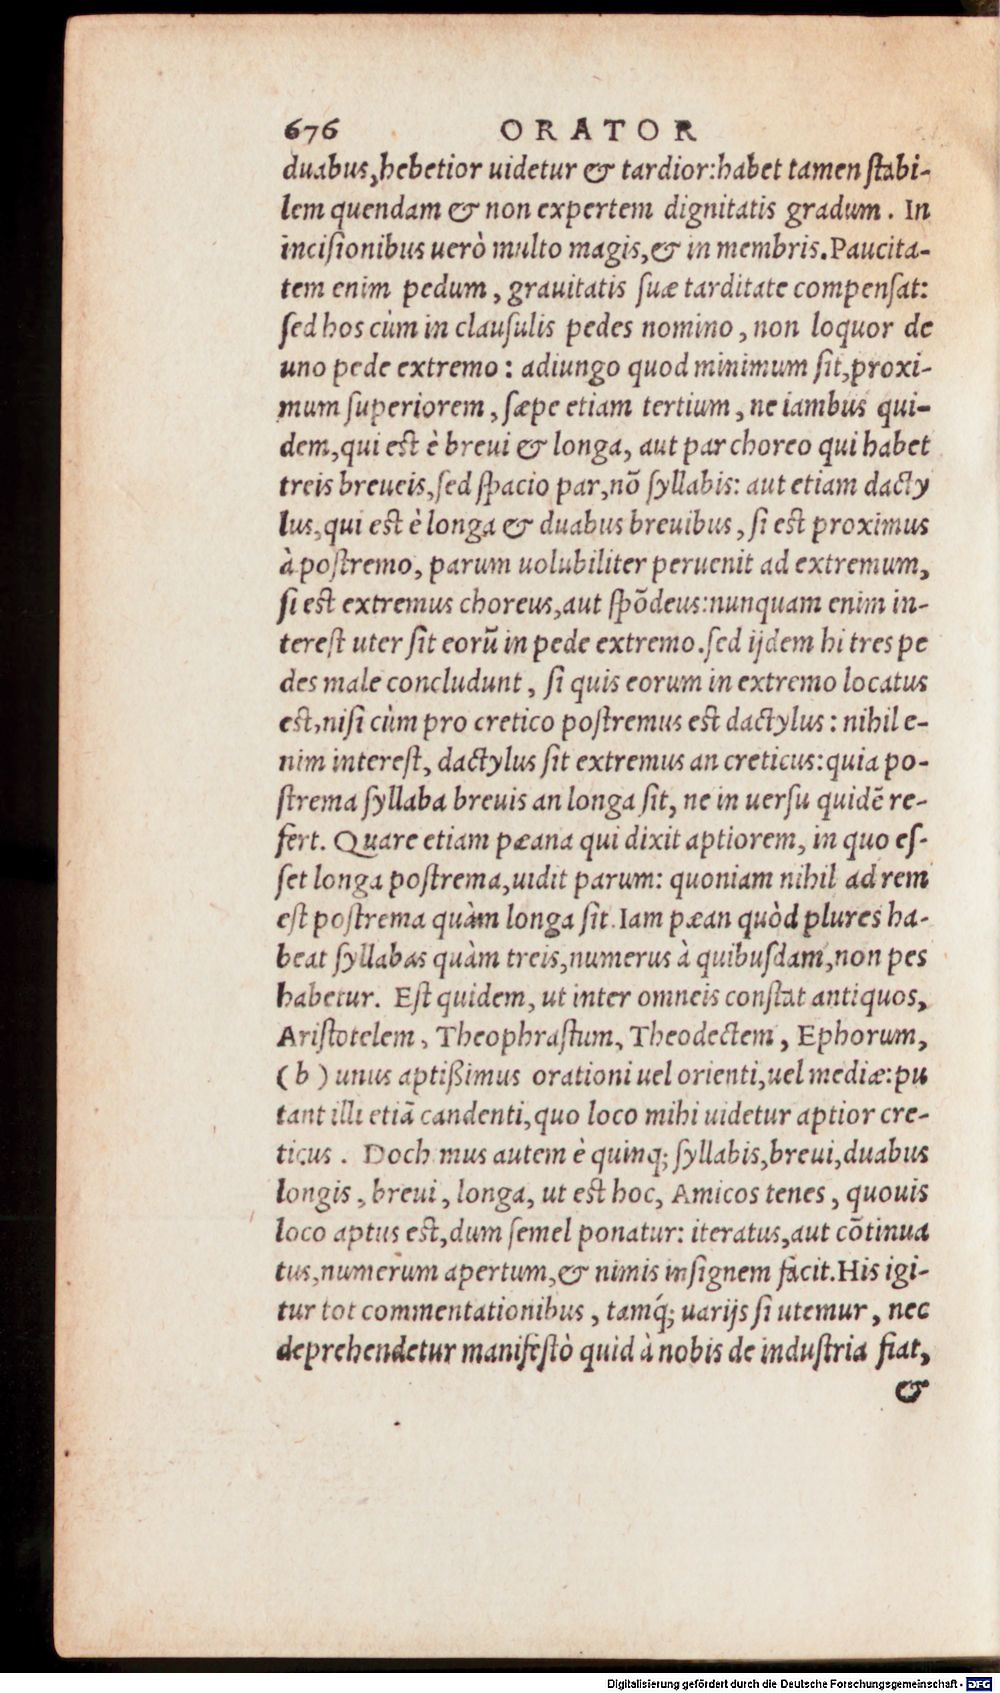 676 ORATOR
duabus, hebetior uidetur & tardior: habet tamen stabi-
lem quendam & non expertem dignitatis gradum. In
incisionibus uerò multo magis, & in membris. Paucita-
tem enim pedum, grauitatis suæ tarditate compensat:
sed hos cùm in clausulis pedes nomino, non loquor de
uno pede extremo: adiungo quod minimum sit, proxi-
mum superiorem, sæpe etiam tertium, ne iambus qui-
dem, qui est è breui & longa, aut par choreo qui habet
treis breueis, sed spacio par, nō syllabis: aut etiam dacty
lus, qui est è longa & duabus breuibus, si est proximus
à postremo, parum uolubiliter peruenit ad extremum,
si est extremus choreus, aut spōdeus: nunquam enim in-
terest uter sit eorū in pede extremo. sed ijdem hi tres pe
des male concludunt, si quis eorum in extremo locatus
est, nisi cùm pro cretico postremus est dactylus: nihil e-
nim interest, dactylus sit extremus an creticus: quia po-
strema syllaba breuis an longa sit, ne in uersu quidē re-
fert. Quare etiam pæana qui dixit aptiorem, in quo es-
set longa postrema, uidit parum: quoniam nihil ad rem
est postrema quàm longa sit. Iam pæan quòd plures ha-
beat syllabas quàm treis, numerus à quibusdam, non pes
habetur. Est quidem, ut inter omneis constat antiquos,
Aristotelem, Theophrastum, Theodectem, Ephorum,
(b) unus aptißimus orationi uel orienti, uel mediæ: pu
tant illi etiā candenti, quo loco mihi uidetur aptior cre-
ticus. Doch mus autem è quinq; syllabis, breui, duabus
longis, breui, longa, ut est hoc, Amicos tenes, quouis
loco aptus est, dum semel ponatur: iteratus, aut cōtinua
tus, numerum apertum, & nimis insignem facit. His igi-
tur tot commentationibus, tamq́; uarijs si utemur, nec
deprehendetur manifestò quid à nobis de industria fiat,
&
Digitalisierung gefördert durch die Deutsche Forschungsgemeinschaft - DFG